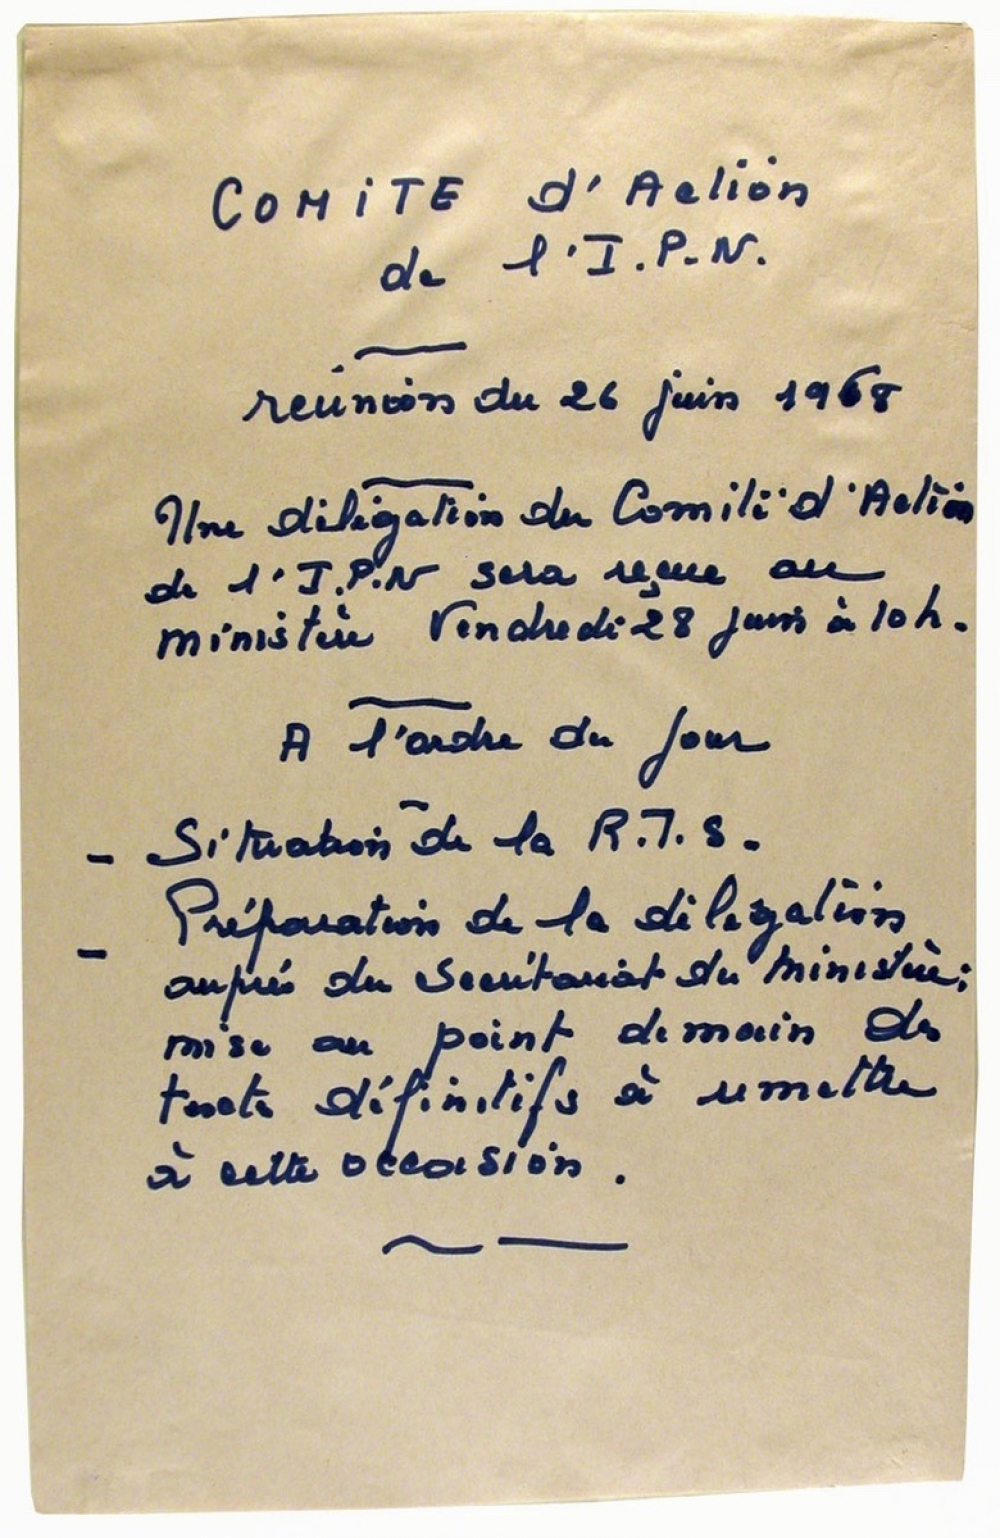 COMITE d'Action
de l'I.P.N.
réunion du 26 juin 1968
Une délégation du Comité d'Action
de l'I.P.N sera reçue au
ministère Vendredi 28 juin à 10h.
A l'ordre du jour
- Situation de la R.T.S.
- Préparation de la délégation
auprès du Secrétariat du Ministère;
mise au point demain des
texte définitifs à remettre
à cette occasion.